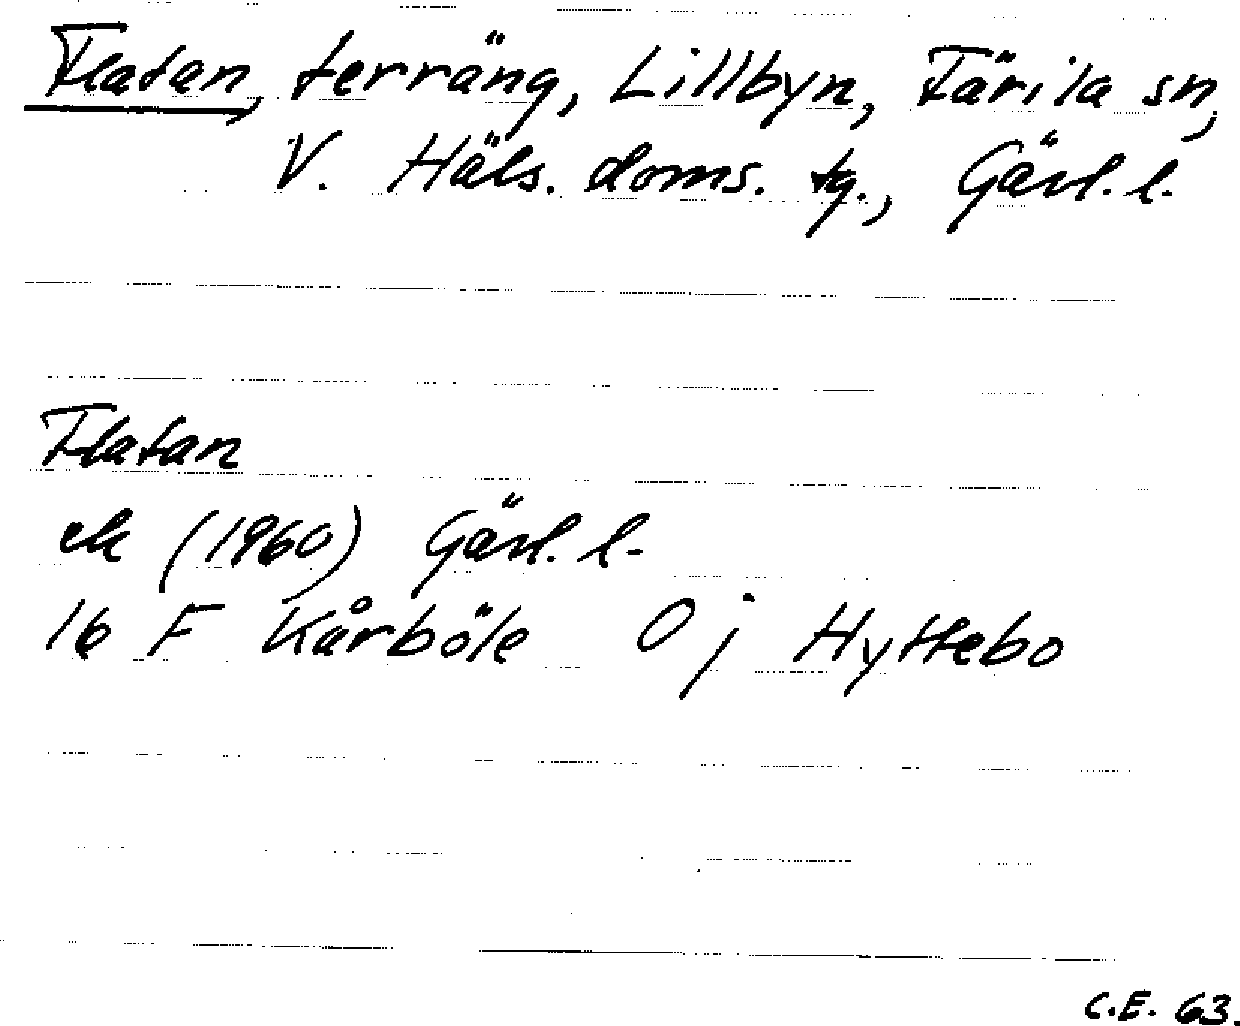 Flatan, terräng, Lillbyn, Färila sn,
V. Häls. doms. tg., Gävl. l.
Flatan
ek (1960) Gävl. l.
16 F Kårböle O j Hyttebo
C.E. 63.